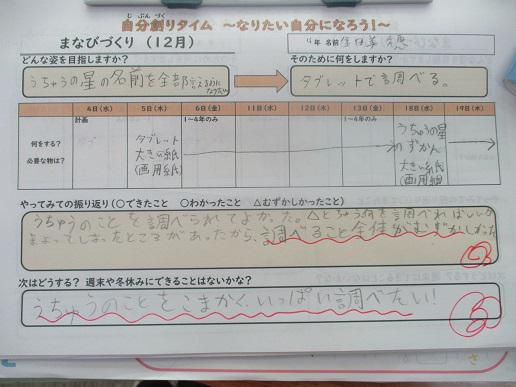 じ ぶんづく
自分創りタイム ～なりたい自分になろう！～
まなびづくり （12月）
4年 名前
どんな姿を目指しますか？
そのために何をしますか？
うちゅうの星の名前を全部言えるように
なりたい
タブレットで調べる。
4日（水） 5日（木） 6日（金） 11日（水） 12日（木） 13日（金） 18日（水） 19日（木）
計画 1～4年のみ 1～4年のみ
何をする？
必要な物は？
タブレット
大きい紙
（画用紙）
うちゅうの星
のずかん
大きい紙
（画用紙
やってみての振り返り（○できたこと ○わかったこと △むずかしかったこと）
うちゅうのことを調べられてよかった。△とちゅう何を調べればいいか
まよってしまったところがあったから、調べること全体がむずかしかった
次はどうする？ 週末や冬休みにできることはないかな？
うちゅうのことをこまかく、いっぱい調べたい！